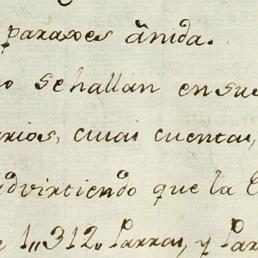 paraxes ãnida.
o se hallan en sus
arios, cuias cuentas,
advirtiendo que la C
e 1,,312,, Parras, y Par